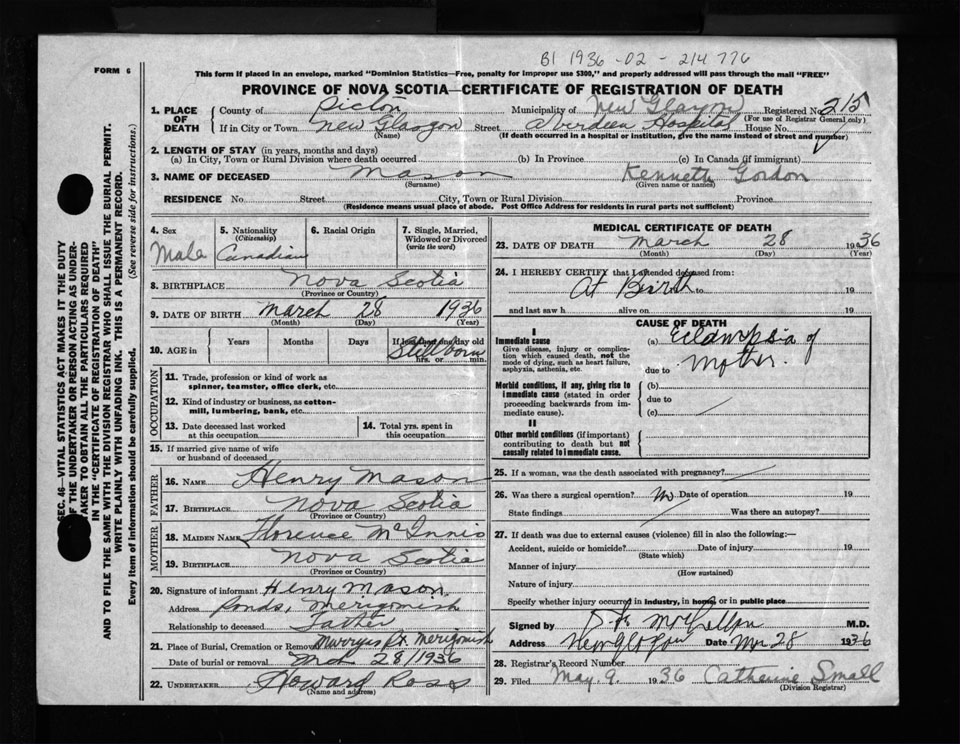 B1 1936-02-214776
FORM 6
This form if placed in an envelope, marked "Dominion Statistics—Free, penalty for improper use $300," and properly addressed will pass through the mail "FREE"
PROVINCE OF NOVA SCOTIA—CERTIFICATE OF REGISTRATION OF DEATH
1. PLACE OF DEATH County of Pictou Municipality of New Glasgow Registered No. 215
(For use of Registrar General only)
If in City or Town New Glasgow Street Aberdeen Hospital House No.
(Name) (If death occurred in a hospital or institution, give the name instead of street and number)
2. LENGTH OF STAY (in years, months and days)
(a) In City, Town or Rural Division where death occurred (b) In Province (c) In Canada (if immigrant)
3. NAME OF DECEASED Mason Kenneth Gordon
(Surname) (Given name or names)
RESIDENCE No. Street City, Town or Rural Division Province
(Residence means usual place of abode. Post Office Address for residents in rural parts not sufficient)
4. Sex 5. Nationality (Citizenship) 6. Racial Origin 7. Single, Married, Widowed or Divorced (write the word)
Male Canadian
8. BIRTHPLACE Nova Scotia
(Province or Country)
9. DATE OF BIRTH March 28 1936
(Month) (Day) (Year)
10. AGE in Years Months Days If less than one day old
Stillborn
hrs. or min.
OCCUPATION
11. Trade, profession or kind of work as
spinner, teamster, office clerk, etc.
12. Kind of industry or business, as cotton-
mill, lumbering, bank, etc.
13. Date deceased last worked at this occupation 14. Total yrs. spent in this occupation
15. If married give name of wife
or husband of deceased
FATHER
16. NAME Henry Mason
17. BIRTHPLACE Nova Scotia
(Province or Country)
MOTHER
18. MAIDEN NAME Florence McInnis
19. BIRTHPLACE Nova Scotia
(Province or Country)
20. Signature of informant Henry Mason
Address Ponds, Merigomish
Relationship to deceased Father
21. Place of Burial, Cremation or Removal Merigomish
Date of burial or removal Mch 28/1936
22. UNDERTAKER Howard Ross
(Name and address)
MEDICAL CERTIFICATE OF DEATH
23. DATE OF DEATH March 28 1936
(Month) (Day) (Year)
24. I HEREBY CERTIFY that I attended deceased from:
At Birth to 19
and last saw h alive on 19
CAUSE OF DEATH
I
Immediate cause (a) Eclampsia of
Give disease, injury or complica-
tion which caused death, not the
mode of dying, such as heart failure,
asphyxia, asthenia, etc.
Mother.
due to
Morbid conditions, if any, giving rise to
immediate cause (stated in order
proceeding backwards from im-
mediate cause).
(b)
due to
(c)
II
Other morbid conditions (if important)
contributing to death but not
causally related to immediate cause.
25. If a woman, was the death associated with pregnancy?
26. Was there a surgical operation? No Date of operation 19
State findings Was there an autopsy?
27. If death was due to external causes (violence) fill in also the following:—
Accident, suicide or homicide? Date of injury 19
(State which)
Manner of injury
(How sustained)
Nature of injury
Specify whether injury occurred in industry, in home, or in public place
Signed by M.D.
Address New Glasgow Date Mar 28 1936
28. Registrar's Record Number
29. Filed May 9 1936 Catherine Small
(Division Registrar)
SEC. 46—VITAL STATISTICS ACT MAKES IT THE DUTY
OF THE UNDERTAKER OR PERSON ACTING AS UNDER-
TAKER TO OBTAIN ALL THE PARTICULARS REQUIRED
IN THE "CERTIFICATE OF REGISTRATION OF DEATH"
AND TO FILE THE SAME WITH THE DIVISION REGISTRAR WHO SHALL ISSUE THE BURIAL PERMIT.
WRITE PLAINLY WITH UNFADING INK. THIS IS A PERMANENT RECORD.
Every item of information should be carefully supplied. (See reverse side for instructions.)